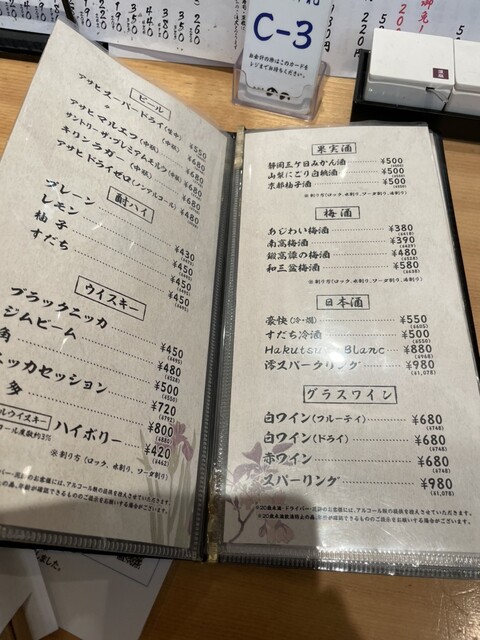 C-3
お会計の際はこのカードを
レジまでお持ちください。
ビール
アサヒスーパードライ(生中) ¥550
アサヒ マルエフ(中瓶) ¥680
サントリー ザ・プレミアムモルツ(中瓶) ¥680
キリン ラガー(中瓶) ¥680
アサヒ ドライゼロ(ノンアルコール) ¥480
酎ハイ
プレーン ¥430
レモン ¥450
柚子 ¥450
すだち ¥450
ウイスキー
ブラックニッカ ¥450
ジムビーム ¥480
角 ¥500
ニッカセッション ¥720
多 ¥800
ハイボリー ¥420
(¥462)
※割り方(ロック、水割り、ソーダ割り)
果実酒
静岡三ケ日みかん酒 ¥500
山梨にごり白桃酒 ¥500
京都柚子酒 ¥500
※割り方(ロック、水割り、ソーダ割り、お湯割り)
梅酒
あじわい梅酒 ¥380
(¥418)
南高梅酒 ¥390
(¥429)
鍛高譚の梅酒 ¥480
(¥528)
和三盆梅酒 ¥580
(¥638)
※割り方(ロック、水割り、ソーダ割り、お湯割り)
日本酒
豪快(冷・燗) ¥550
(¥605)
すだち冷酒 ¥500
(¥550)
Hakutsuru Blanc ¥880
(¥968)
澪スパークリング ¥980
(¥1,078)
グラスワイン
白ワイン(フルーティ) ¥680
(¥748)
白ワイン(ドライ) ¥680
(¥748)
赤ワイン ¥680
(¥748)
スパーリング ¥980
(¥1,078)
※20歳未満・ドライバー・妊娠のお客様には、アルコール類の提供を控えさせていただきます。
※20歳未満飲酒防止の為、年齢が確認できるもののご提示をお願いする場合がございます。